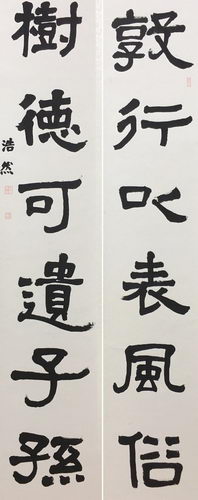 敦行以表風俗
樹德可遺子孫
浩然